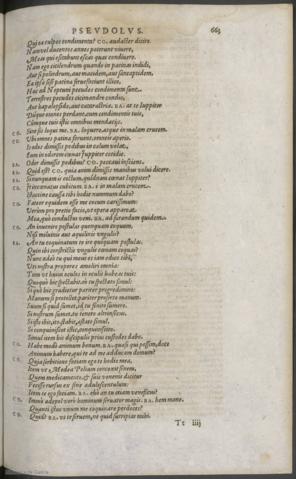 PSEVDOLVS. 663
Qui ea culpes condimenta? CO. audacter dicito.
Nam vel ducentos annos poterunt vivere,
Meas qui esitabunt escas quas condivero.
Nam ego cicilendrum quando in patinas indidi,
Aut si polindrum, aut macidem, aut sancaptidem,
Eæ ipsæ sese patinæ fervefaciunt illico,
Hæc ad Neptuni pecudes condimenta sunt.
Terrestres pecudes cicimandro condio,
Aut hapalopside, aut cataractria. BA. at te Iuppiter
Diique omnes perdant, cum condimentis tuis,
Cumque tuis istis omnibus mendaciis.
CO. Sine sis loqui me. BA. loquere, atque in malam crucem.
CO. Vbi omnes patinæ fervent, omneis aperio.
Is odos dimissis pedibus in cælum volat,
Eum in odorem cœnat Iuppiter cotidie.
BA. Odor dimissis pedibus? CO. peccavi insciens.
BA. Quid est? CO. quia enim dimissis manibus volui dicere.
BA. Si nusquam is coctum, quidnam cœnat Iuppiter?
CO. It incœnatus cubitum. BA. i in malam crucem.
Istaccine causa tibi hodie nummum dabo?
CO. Fateor equidem esse me coquum carissimum:
Verùm pro pretio facio, ut opera appareat
Mea, quò conductus veni. BA. ad furandum quidem.
CO. An invenire postulas quenquam coquum,
Nisi milvinis aut aquilinis ungulis?
BA. An tu coquinatum te ire quoquam postulas,
Quin ibi constrictis ungulis cœnam coquas?
Nunc adeò tu qui meus es iam edico tibi,
Vt nostra properes amoliri omnia:
Tum ut huius oculos in oculis habeas tuis:
Quoquò hic spectabit, eò tu spectato simul:
Si quò hic gradietur pariter progredimino:
Manum si protollet, pariter proferto manum.
Suum si quid sumet, id tu sinito sumere.
Si nostrum sumet, tu teneto altrinsecus.
Si iste ibit, ito, stabit, astato simul.
Si conquiniscet istic, conquiniscito.
Simul item his discipulis privos custodes dabo.
CO. Habe modò animum bonum. BA. quæso qui possim, doce
Animum habere, qui te ad me adducam domum?
CO. Quia sorbitione faciam ego te hodie mea,
Item ut Medea Peliam concoxit senem,
Quem medicamento, & suis venenis dicitur
Fecisse rursus ex sene adulescentulum:
Item te ego faciam. BA. eho an tu etiam veneficus?
CO. Immò edepol verò hominum servator magis. BA. hem mane.
Quanti istuc unum me coquinare perdoces?
CO. Quid? BA. ut te servem, ne quid surripias mihi.
Tt iiij